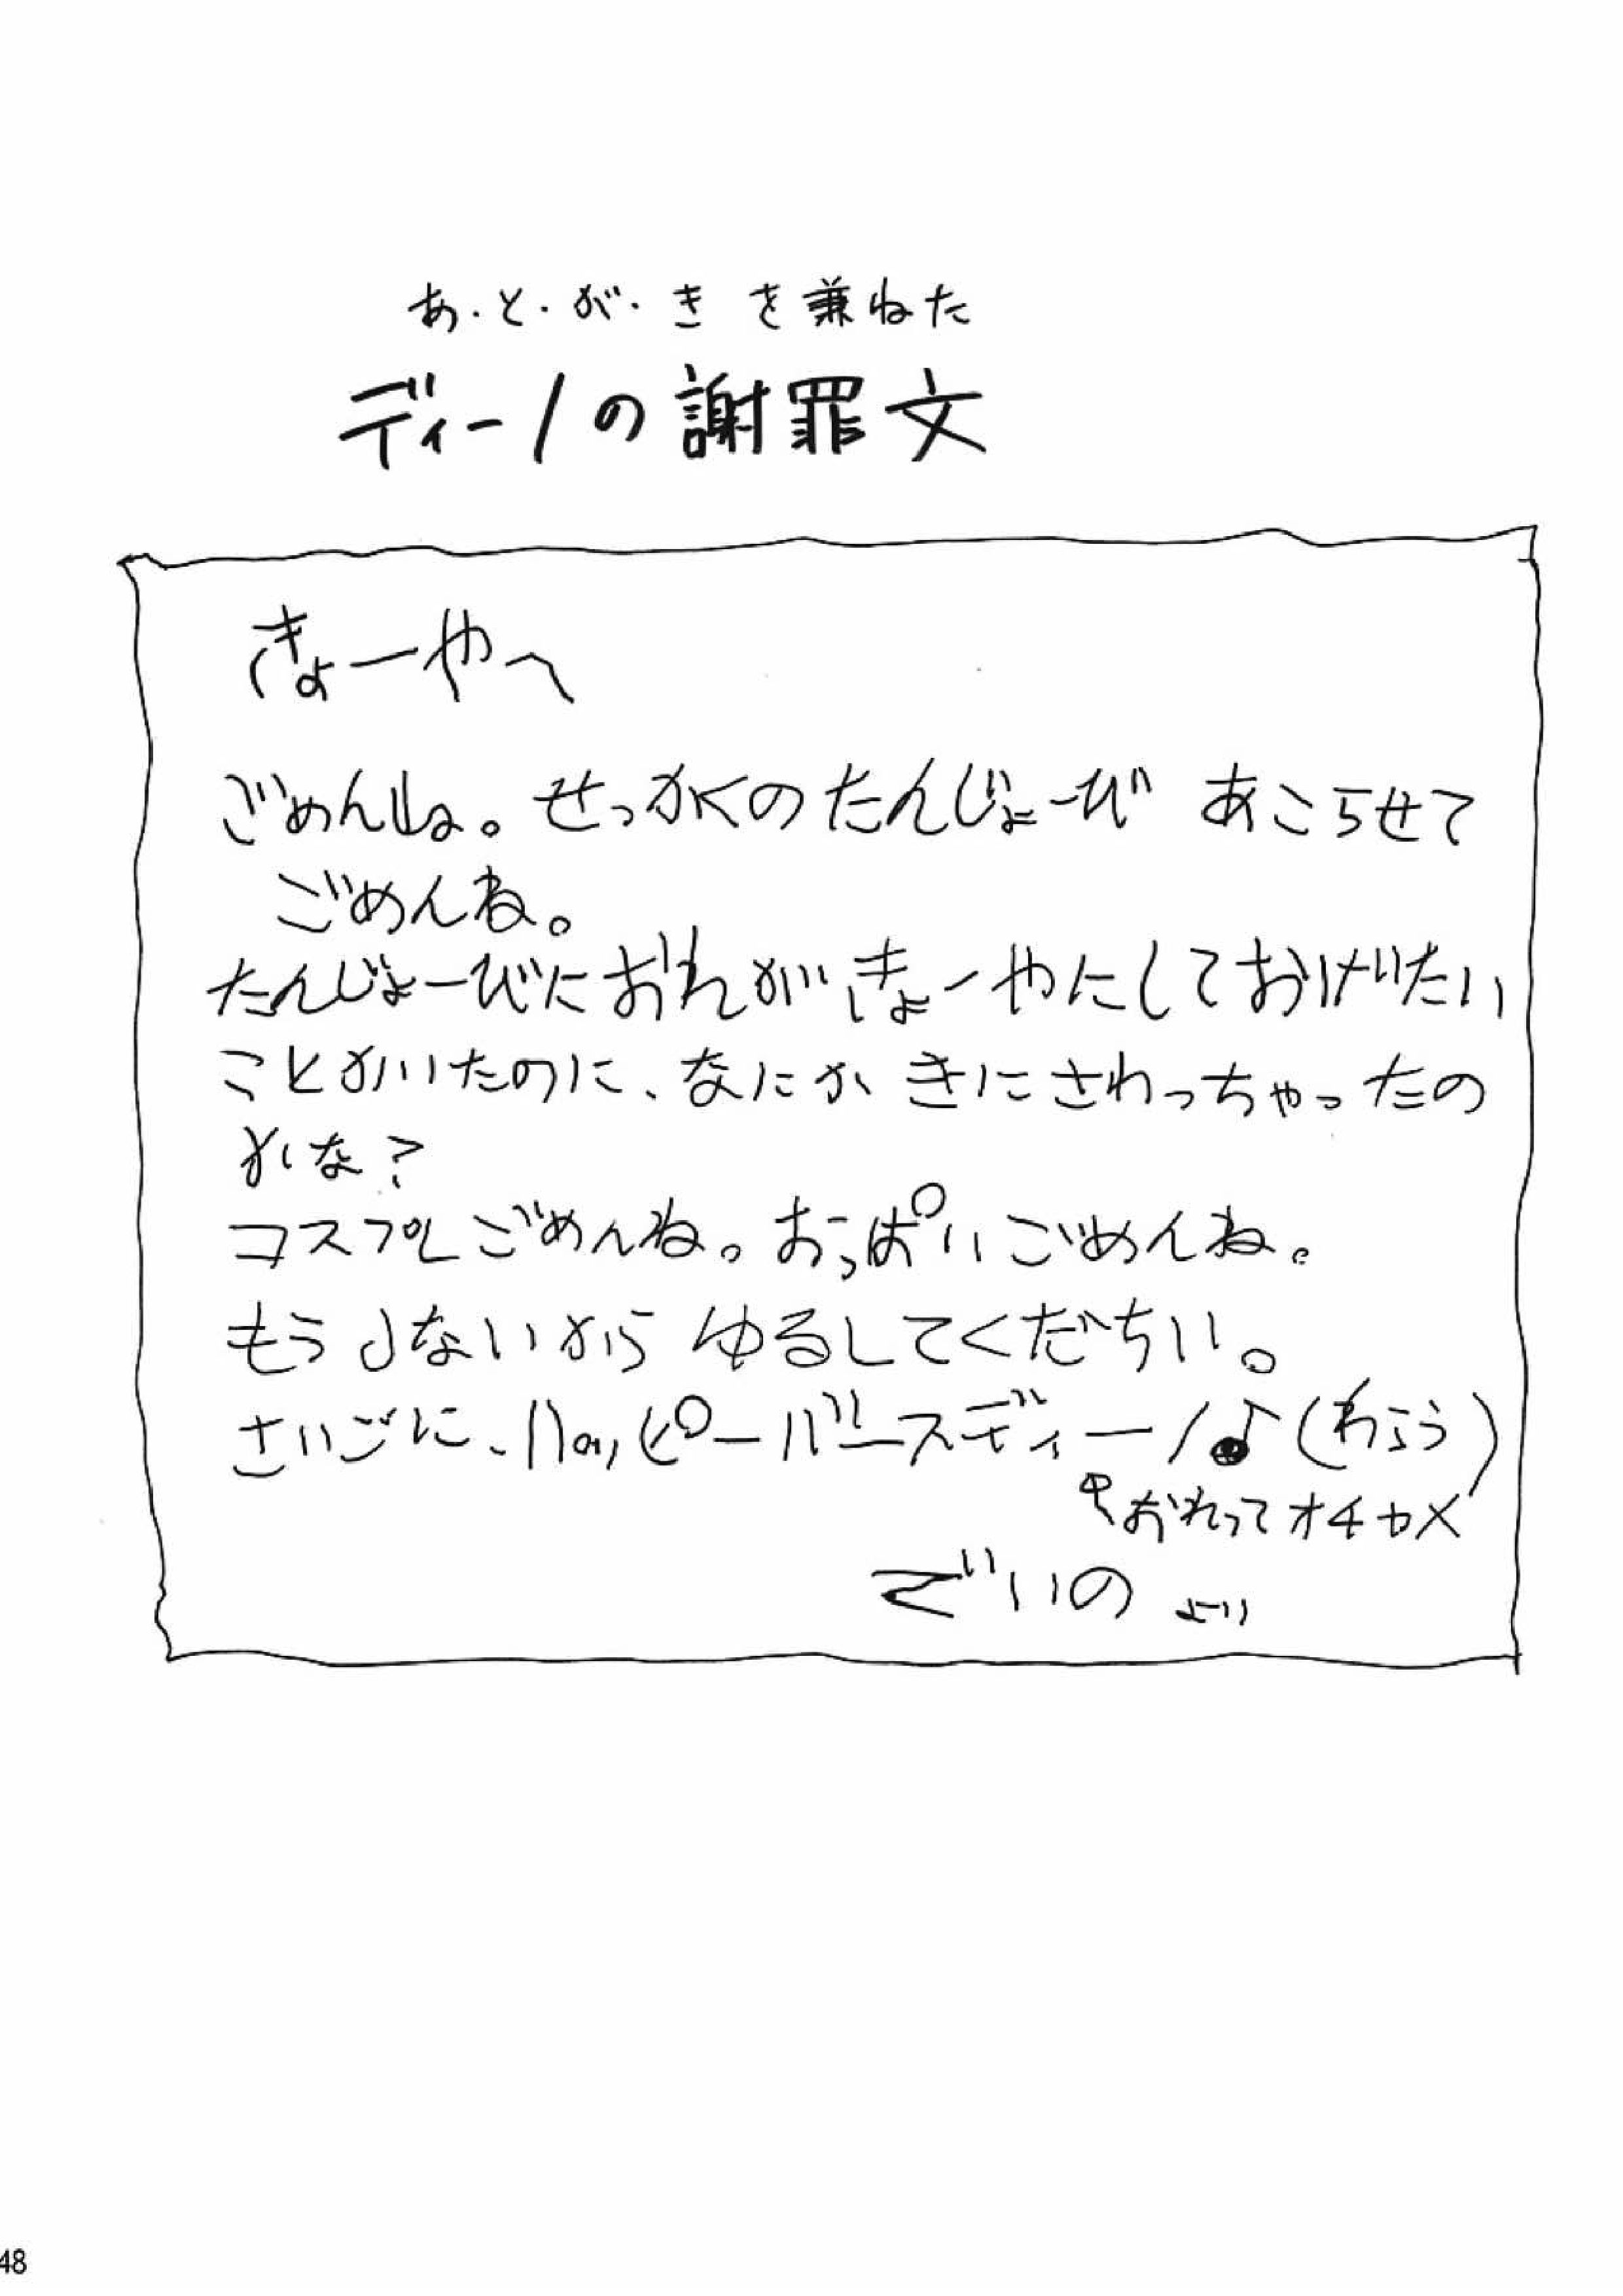 あ・と・が・きを兼ねた
ディーノの謝罪文
きょーやへ
ごめんね。せっかくのたんじょーび あこらせて
ごめんね。
たんじょーびにおれがきょーやにしておげたい
ことかいたのに、なにか きにさわっちゃったの
かな?
コスプレごめんね。おっぱいごめんね。
もうしないから ゆるしてくだちい。
さいごに、ハッピーバースディーノ♪(わらう)
おれってオチャメ
でいの より
48